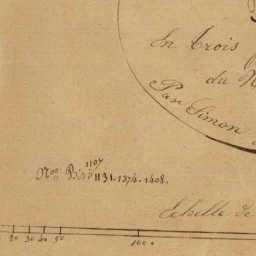 En trois
du
Par Simon
1107
Nos Bis 1131.1374.1408.
Echelle de
20 30 40 50 100